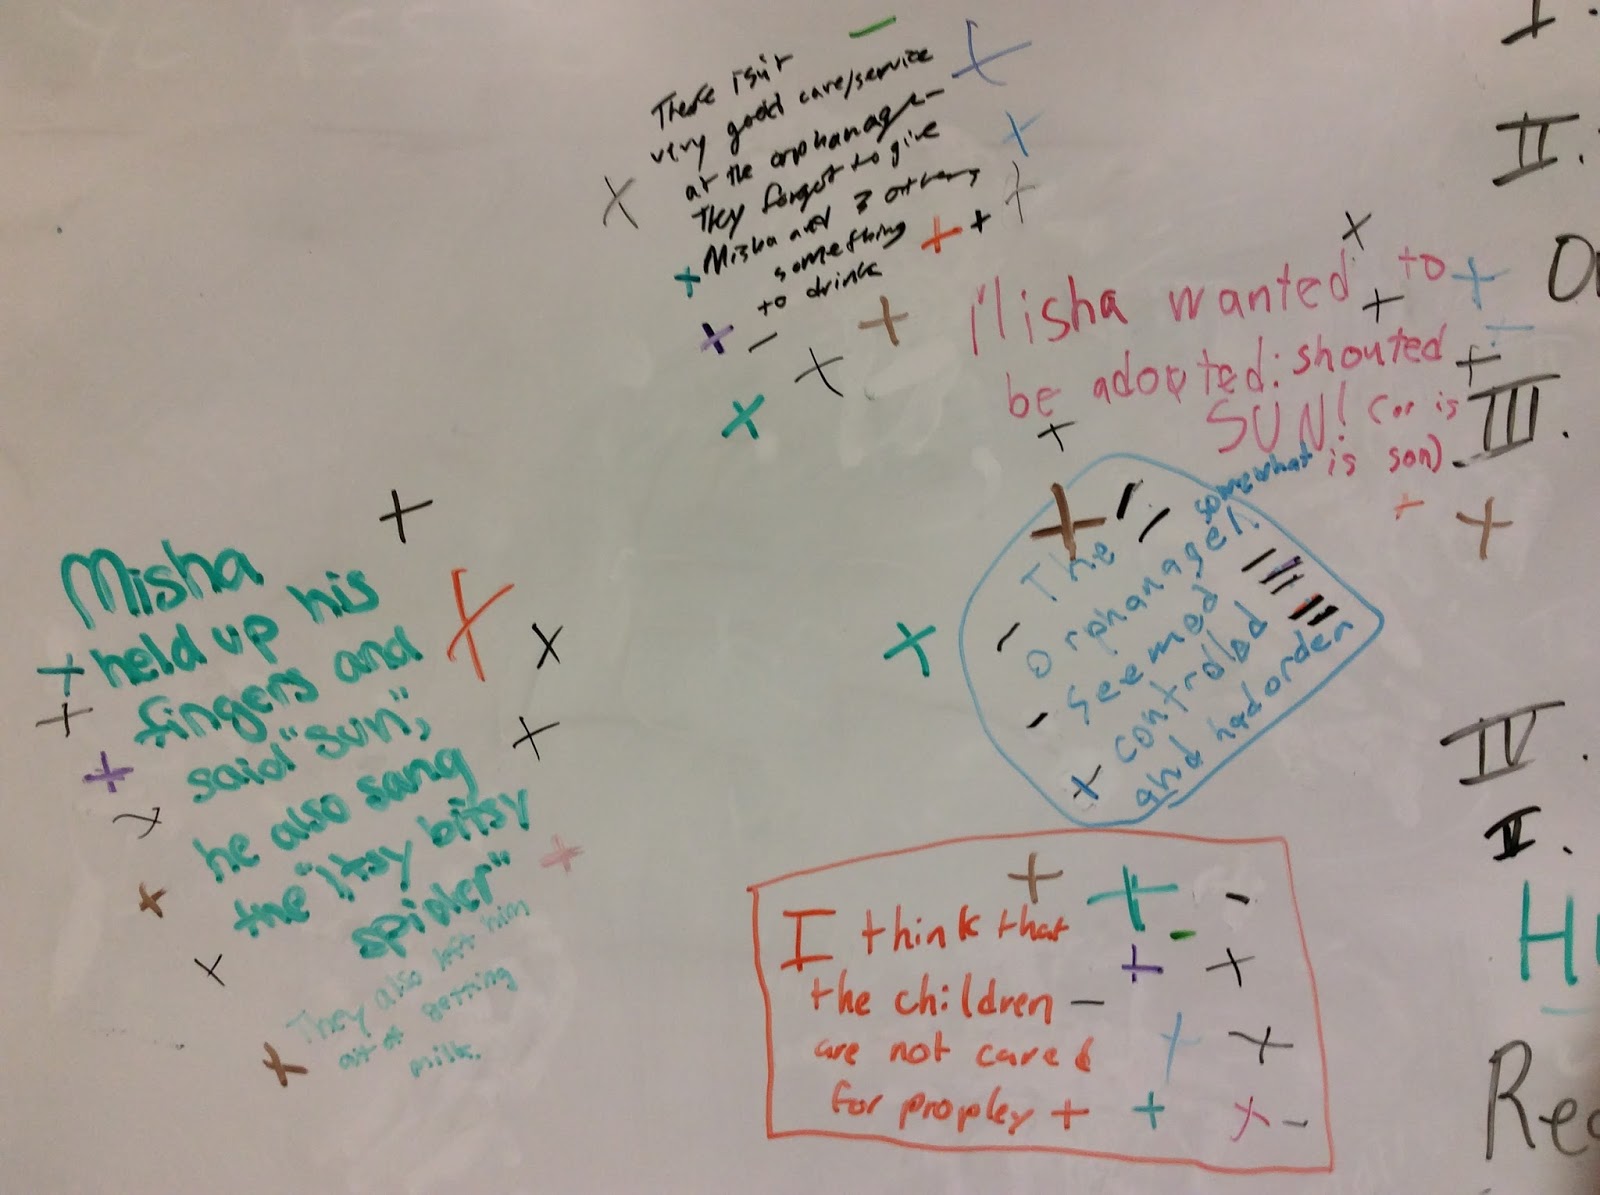 There isn't
very good care/service
at the orphanage-
They forgot to give
Misha and 3 others
something
to drink
Misha wanted to
be adopted: shouted
SUN! (or is
is son)
somewhat
The
orphanage
seemed
controled
and had order
Misha
held up his
fingers and
said "sun",
he also sang
the "Itsy bitsy
spider"
They also left him
out of getting
milk.
I think that
the children
are not cared
for propley
I.
II.
III.
IV.
V.